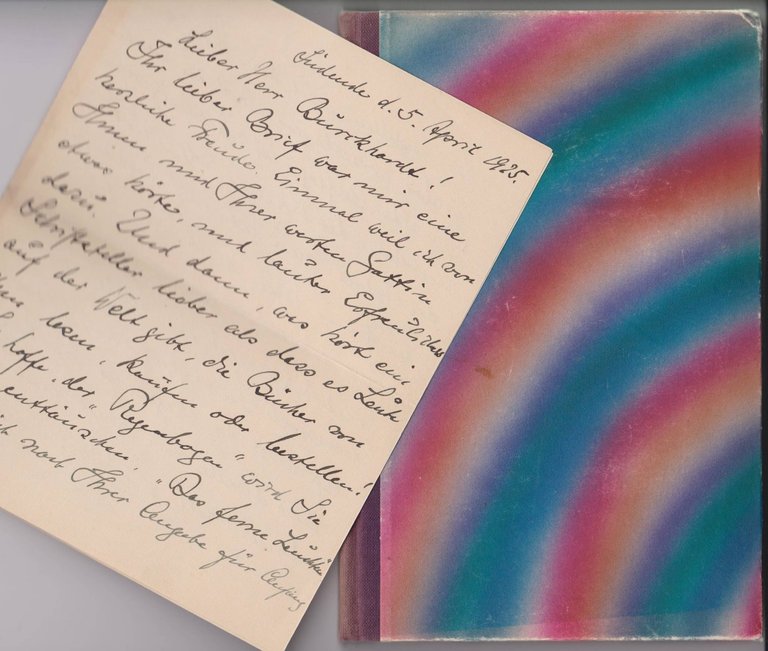 Südende d. 5. April 1925.
Lieber Herr Burckhardt!
Ihr lieber Brief war mir eine
herzliche Freude. Einmal weil ich von
Ihnen und Ihrer werten Gattin
etwas hörte, und lauter Erfreuliches
dazu. Und dann, was hört ein
Schriftsteller lieber als dass es Leute
auf der Welt gibt, die Bücher von
lesen, kaufen oder bestellen!
hoffe, der „Regenbogen" wird Sie
enttäuschen. „Das ferne Leuchten
noch Ihrer Angabe für Anfang